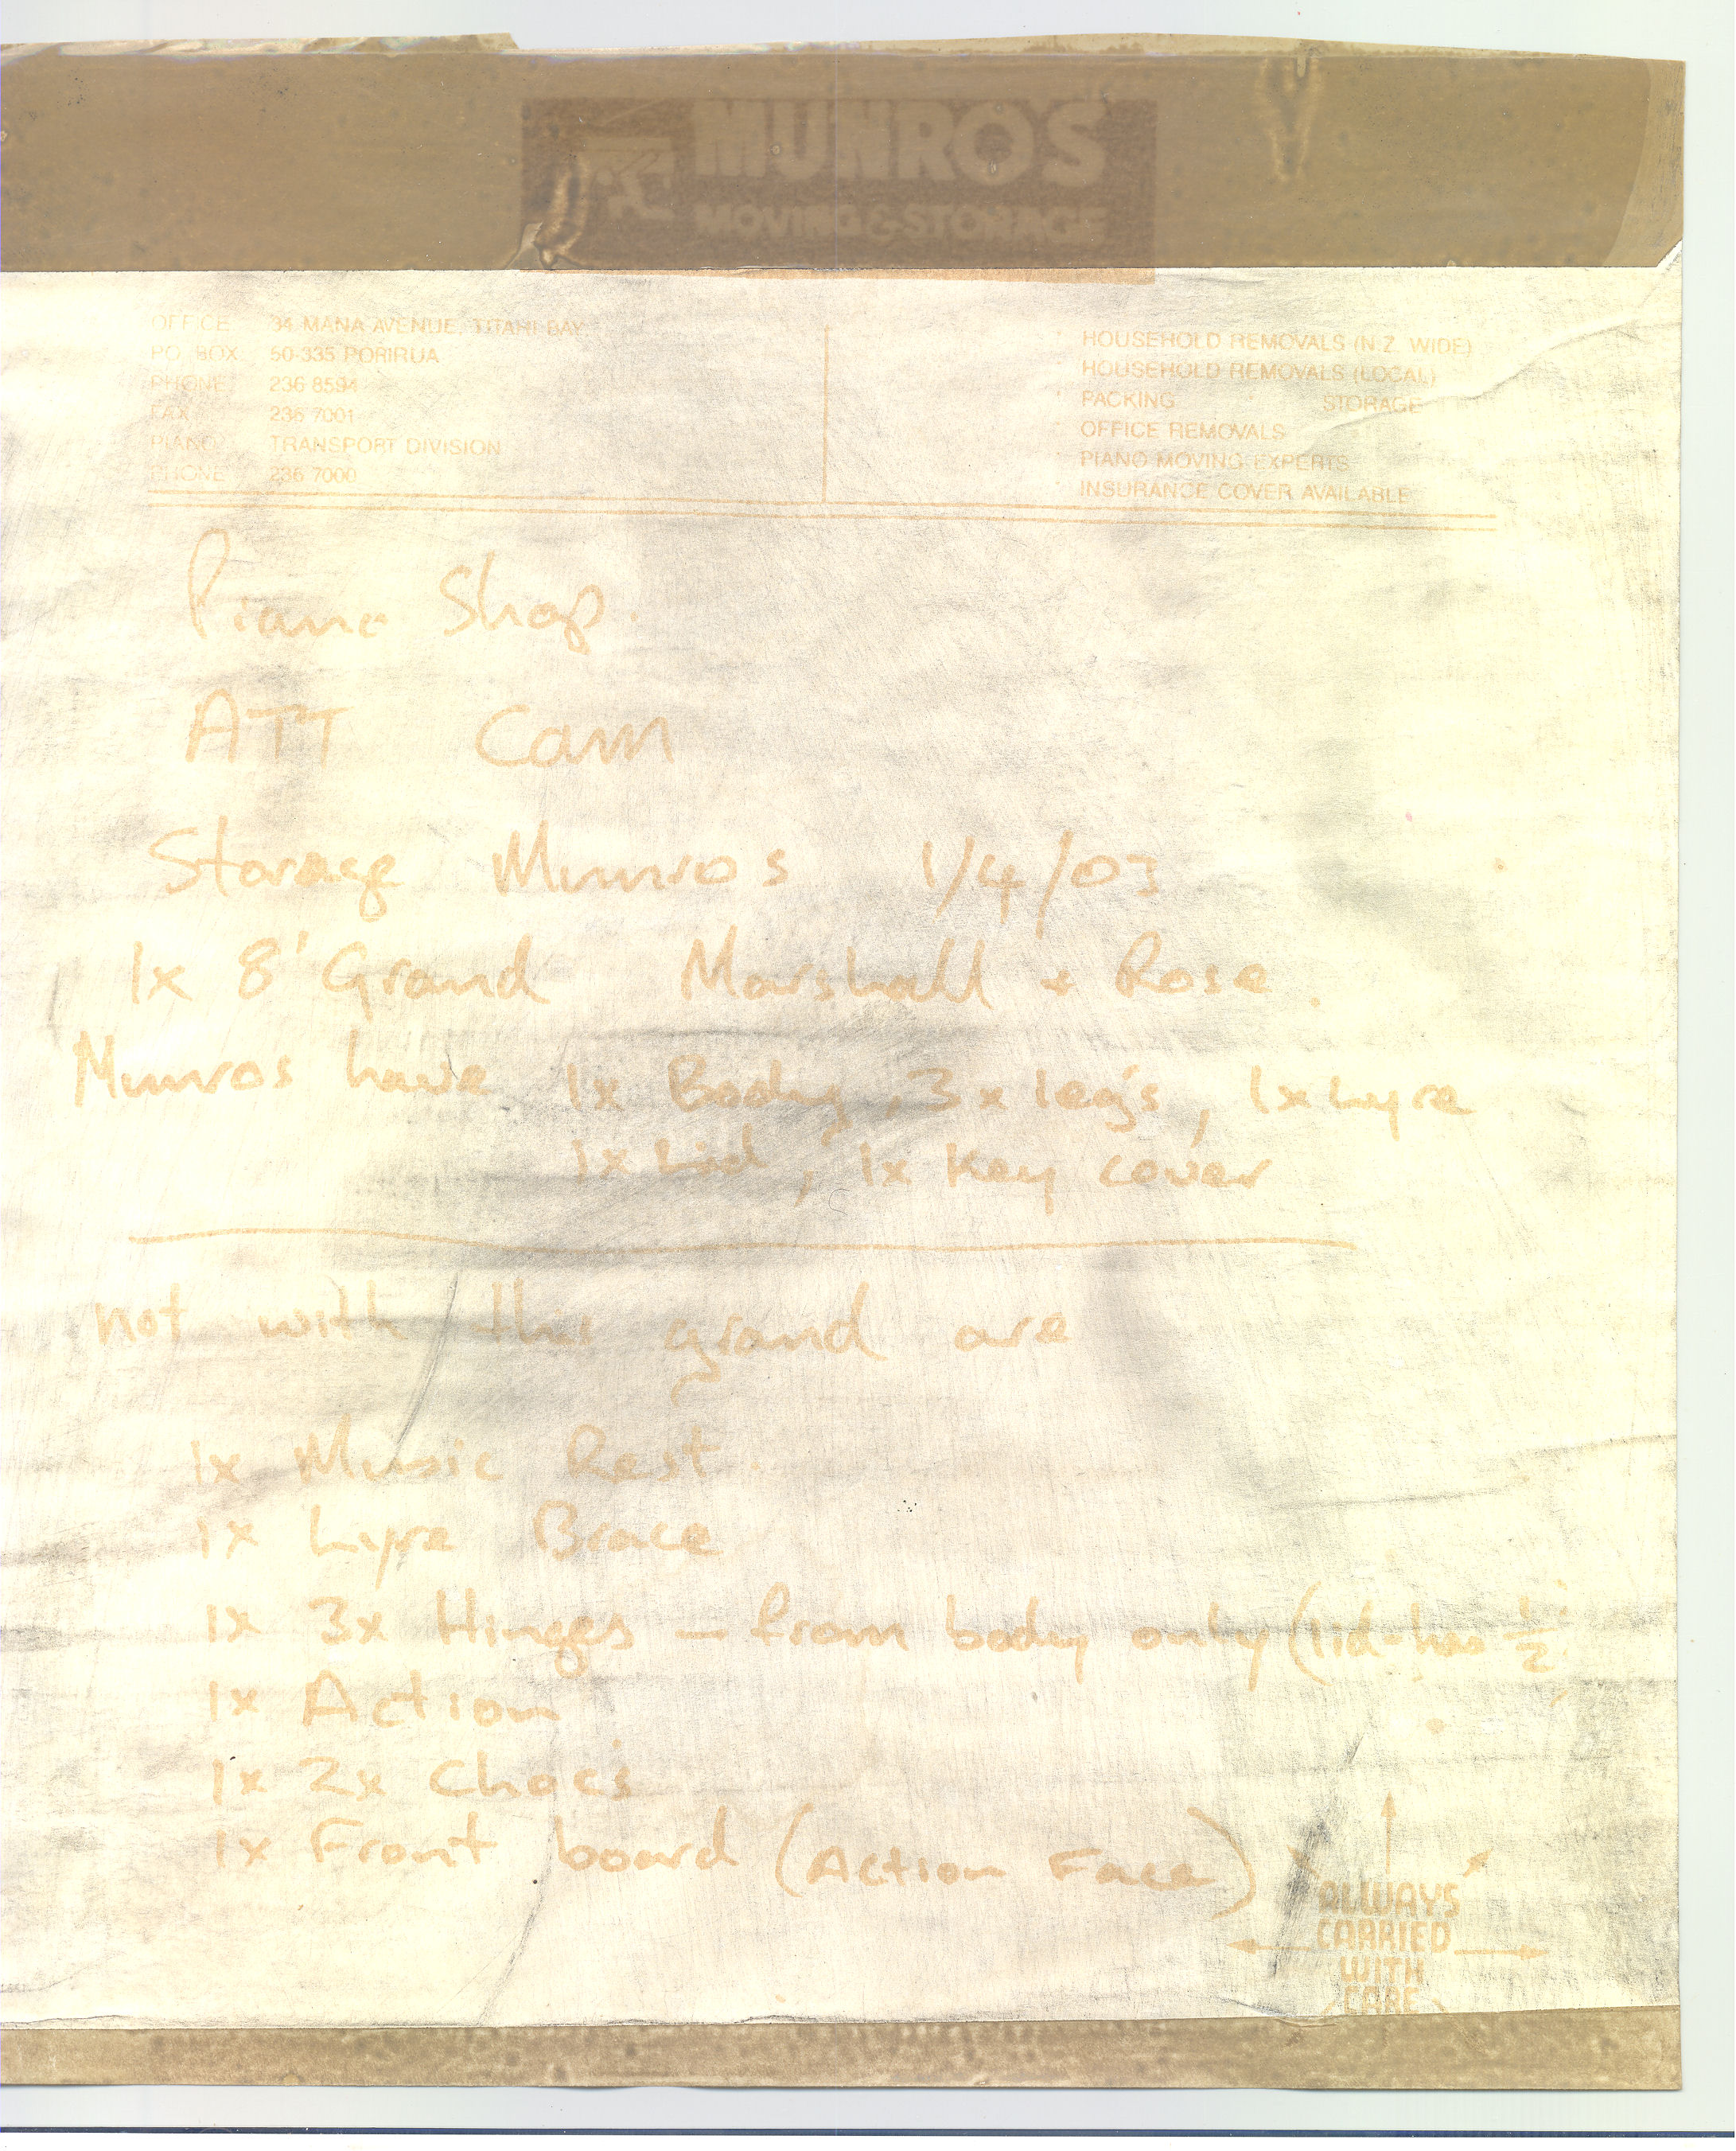 MUNRO'S
MOVING & STORAGE
OFFICE 34 MANA AVENUE, TITAHI BAY
PO BOX 50-335 PORIRUA
PHONE 236 8594
FAX 236 7001
PIANO TRANSPORT DIVISION
PHONE 236 7000
HOUSEHOLD REMOVALS (N.Z. WIDE)
HOUSEHOLD REMOVALS (LOCAL)
PACKING STORAGE
OFFICE REMOVALS
PIANO MOVING EXPERTS
INSURANCE COVER AVAILABLE
Piano Shop.
ATT Cam
Storage Munros 1/4/03
1x 8' Grand Marshall + Rose.
Munros have 1x Body, 3x leg's, 1x Lyre
1x Lid, 1x Key cover
not with this grand are
1x Music Rest.
1x Lyre Brace
1x 3x Hinges - from body only (lid-has 1/2
1x Action
1x 2x Choc's
1x Front board (Action Face)
ALWAYS
CARRIED
WITH
CARE